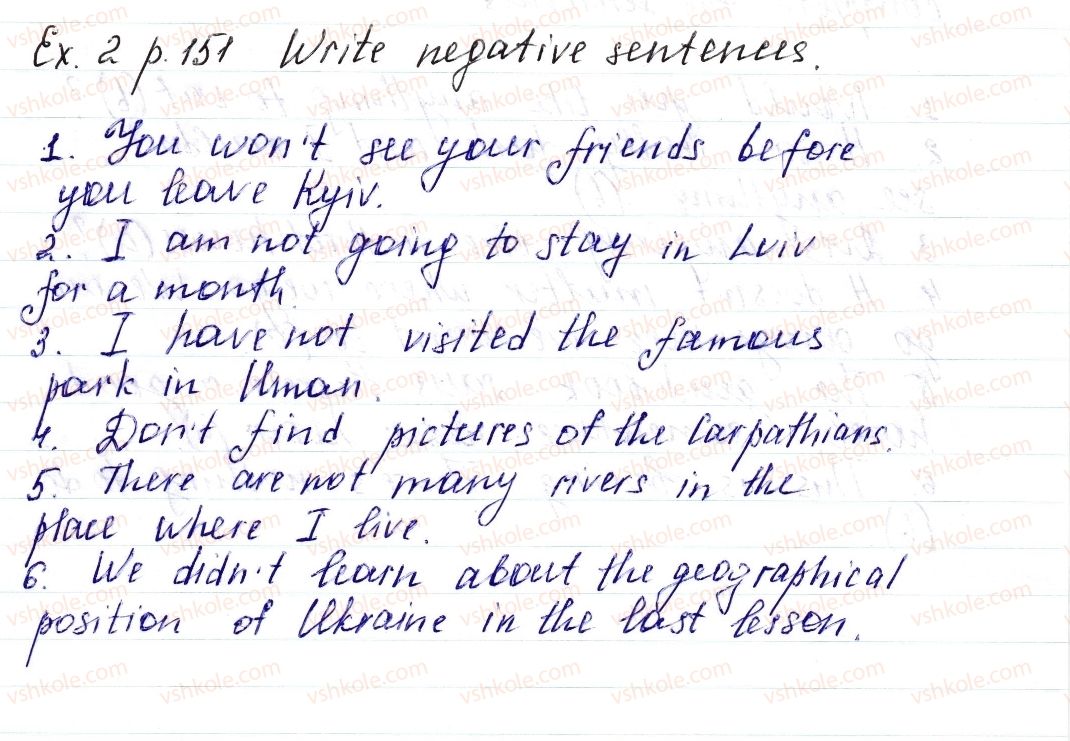 Ex. 2 p. 151 Write negative sentences.
1. You won't see your friends before
you leave Kyiv.
2. I am not going to stay in Lviv
for a month.
3. I have not visited the famous
park in Uman.
4. Don't find pictures of the Carpathians.
5. There are not many rivers in the
place where I live.
6. We didn't learn about the geographical
position of Ukraine in the last lesson.